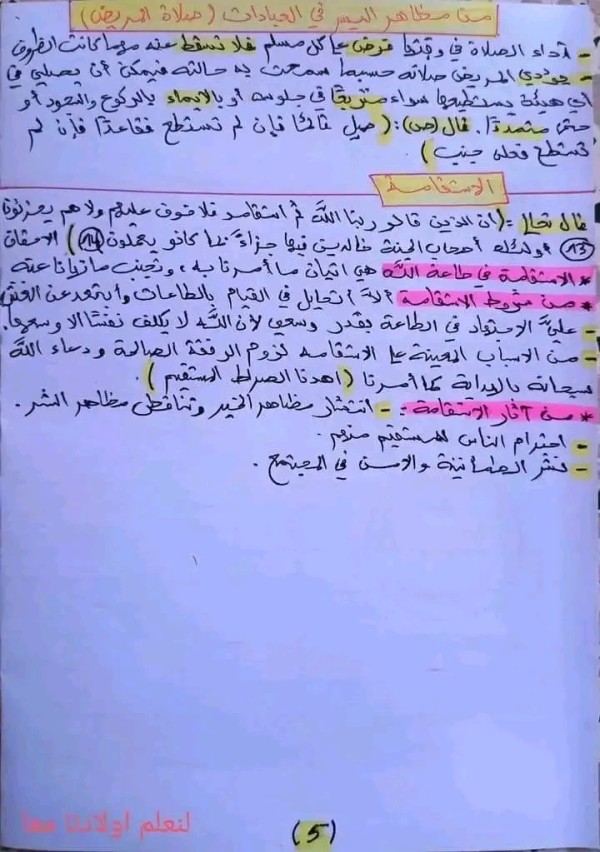 من مظاهر اليسر في العبادات (صلاة المريض)
- أداء الصلاة في وقتها فرض على كل مسلم فلا تسقط عنه مهما كانت الظروف
- يؤدي المريض صلاته حسبما سمحت به حالته فيمكن أن يصلي في
أي هيئة يستطيعها سواء متربعًا في جلوسه أو بالايماء بالركوع والسجود أو
حتى متمددًا. قال (ص): (صل قائمًا فإن لم تستطع فقاعدًا فإن لم
تستطع فعلى جنب)
الاستقامة
قال تعالى: (إن الذين قالو ربنا الله ثم استقامو فلا خوف عليهم ولا هم يحزنون
(13) أولئك أصحاب الجنة خالدين فيها جزاءً بما كانو يعملون (14)) الاحقاف
* الاستقامة في طاعة الله هي اتيان ما أمرنا به، وتجنب ما نهانا عنه
* من شروط الاستقامة ألا أتحايل في القيام بالطاعات وأبتعد عن الغش
- عليَّ الاجتهاد في الطاعة بقدر وسعي لأن الله لا يكلف نفسًا الا وسعها.
- من الاسباب المعينة على الاستقامه لزوم الرفقة الصالحة ودعاء الله
سبحانه بالهداية كما أمرنا (اهدنا الصراط المستقيم).
* من آثار الاستقامة: - انتشار مظاهر الخير وتناقص مظاهر الشر.
- احترام الناس للمستقيم منهم.
- نشر الطمأنينة والامن في المجتمع.
لنعلم اولادنا معا
(5)